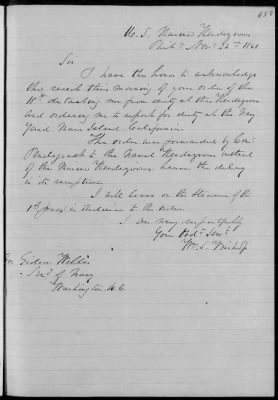 U. S. Marine Rendezvous
Phila Nov. 22nd 1861
Sir
I have the honor to acknowledge
the receipt this morning of your order of the
detaching me from duty at this Rendezvous
and ordering me to report for duty at the Navy
Yard Mare Island California.
The order was forwarded by Com
Pendergrast to the Naval Rendezvous instead
of the Marine Rendezvous, hence the delay
in its reception.
I will leave on the Steamer of the
1st in obedience to the order.
I am very respectfully
Your Obdt Servt
Wm. S.
Hon Gideon Welles
Secy of Navy
Washington D.C.